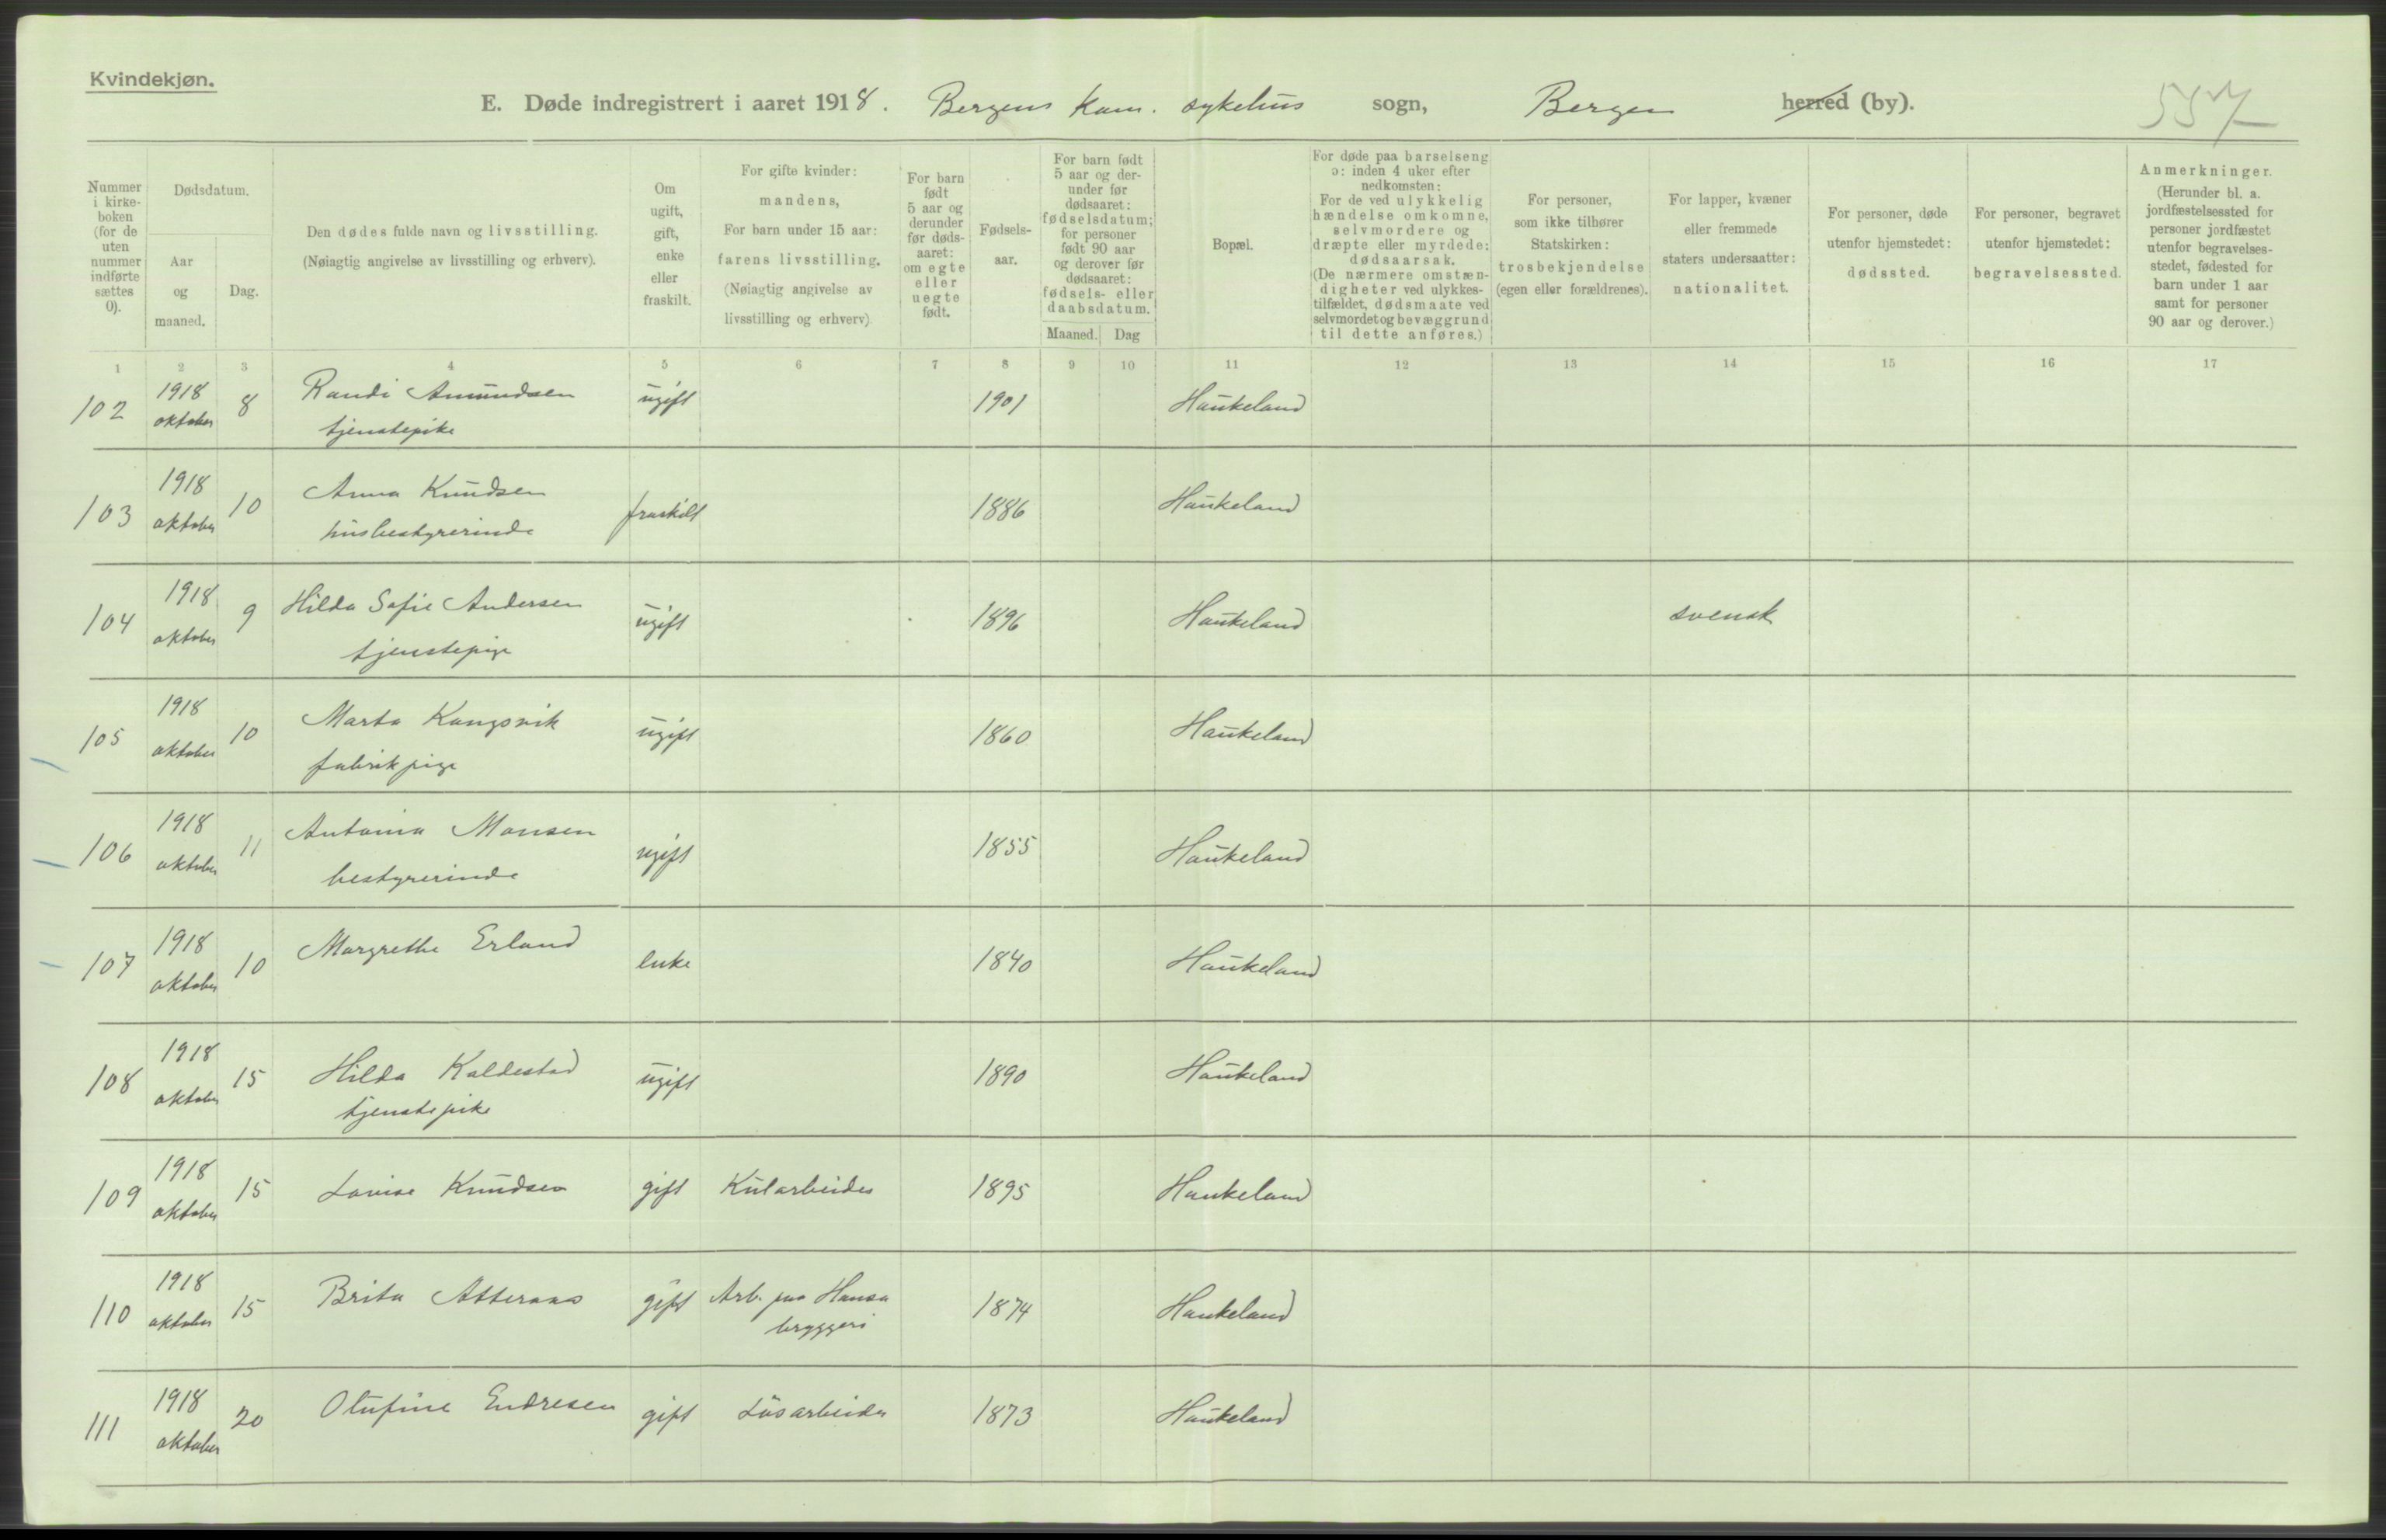 Kvindekjøn.
E. Døde indregistrert i aaret 1918. Bergens kom. sykehus sogn, Bergen herred (by). 557
Nummer i kirkeboken (for de uten nummer indførte sættes 0).
Dødsdatum.
Aar og maaned.
Dag.
Den dødes fulde navn og livsstilling.
(Nøiagtig angivelse av livsstilling og erhverv).
Om ugift, gift, enke eller fraskilt.
For gifte kvinder: mandens,
For barn under 15 aar: farens livsstilling.
(Nøiagtig angivelse av livsstilling og erhverv)
For barn født 5 aar og derunder før dødsaaret: om egte eller uegte født.
Fødselsaar.
For barn født 5 aar og derunder før dødsaaret: fødselsdatum; for personer født 90 aar og derover før dødsaaret: fødsels- eller daabsdatum.
Maaned. Dag
Bopæl.
For døde paa barselseng ɔ: inden 4 uker efter nedkomsten: For de ved ulykkelig hændelse omkomne, selvmordere og dræpte eller myrdede: dødsaarsak. (De nærmere omstændigheter ved ulykkestilfældet, dødsmaate ved selvmordet og bevæggrund til dette anføres.)
For personer, som ikke tilhører Statskirken: trosbekjendelse (egen eller forældrenes).
For lapper, kvæner eller fremmede staters undersaatter: nationalitet.
For personer, døde utenfor hjemstedet: dødssted.
For personer, begravet utenfor hjemstedet: begravelsessted.
Anmerkninger. (Herunder bl. a. jordfæstelsessted for personer jordfæstet utenfor begravelsesstedet, fødested for barn under 1 aar samt for personer 90 aar og derover.)
1 2 3 4 5 6 7 8 9 10 11 12 13 14 15 16 17
102 1918 oktober 8 Randi Amundsen ugift 1901 Haukeland
tjenstepike
103 1918 oktober 10 Anna Knudsen fraskilt 1886 Haukeland
husbestyrerinde
104 1918 oktober 9 Hilda Sofie Andersen ugift 1896 Haukeland svensk
tjenstepige
105 1918 oktober 10 Marta Kongsvik ugift 1860 Haukeland
fabrikpige
106 1918 oktober 11 Antonia Monsen ugift 1855 Haukeland
bestyrerinde
107 1918 oktober 10 Margrethe Erland enke 1840 Haukeland
108 1918 oktober 15 Hilda Kaldestad ugift 1890 Haukeland
tjenstepike
109 1918 oktober 15 Lovise Knudsen gift Kularbeider 1895 Haukeland
110 1918 oktober 15 Brita Atteraas gift Arb. paa Hansa 1874 Haukeland
bryggeri
111 1918 oktober 20 Olufine Endresen gift Løsarbeider 1873 Haukeland